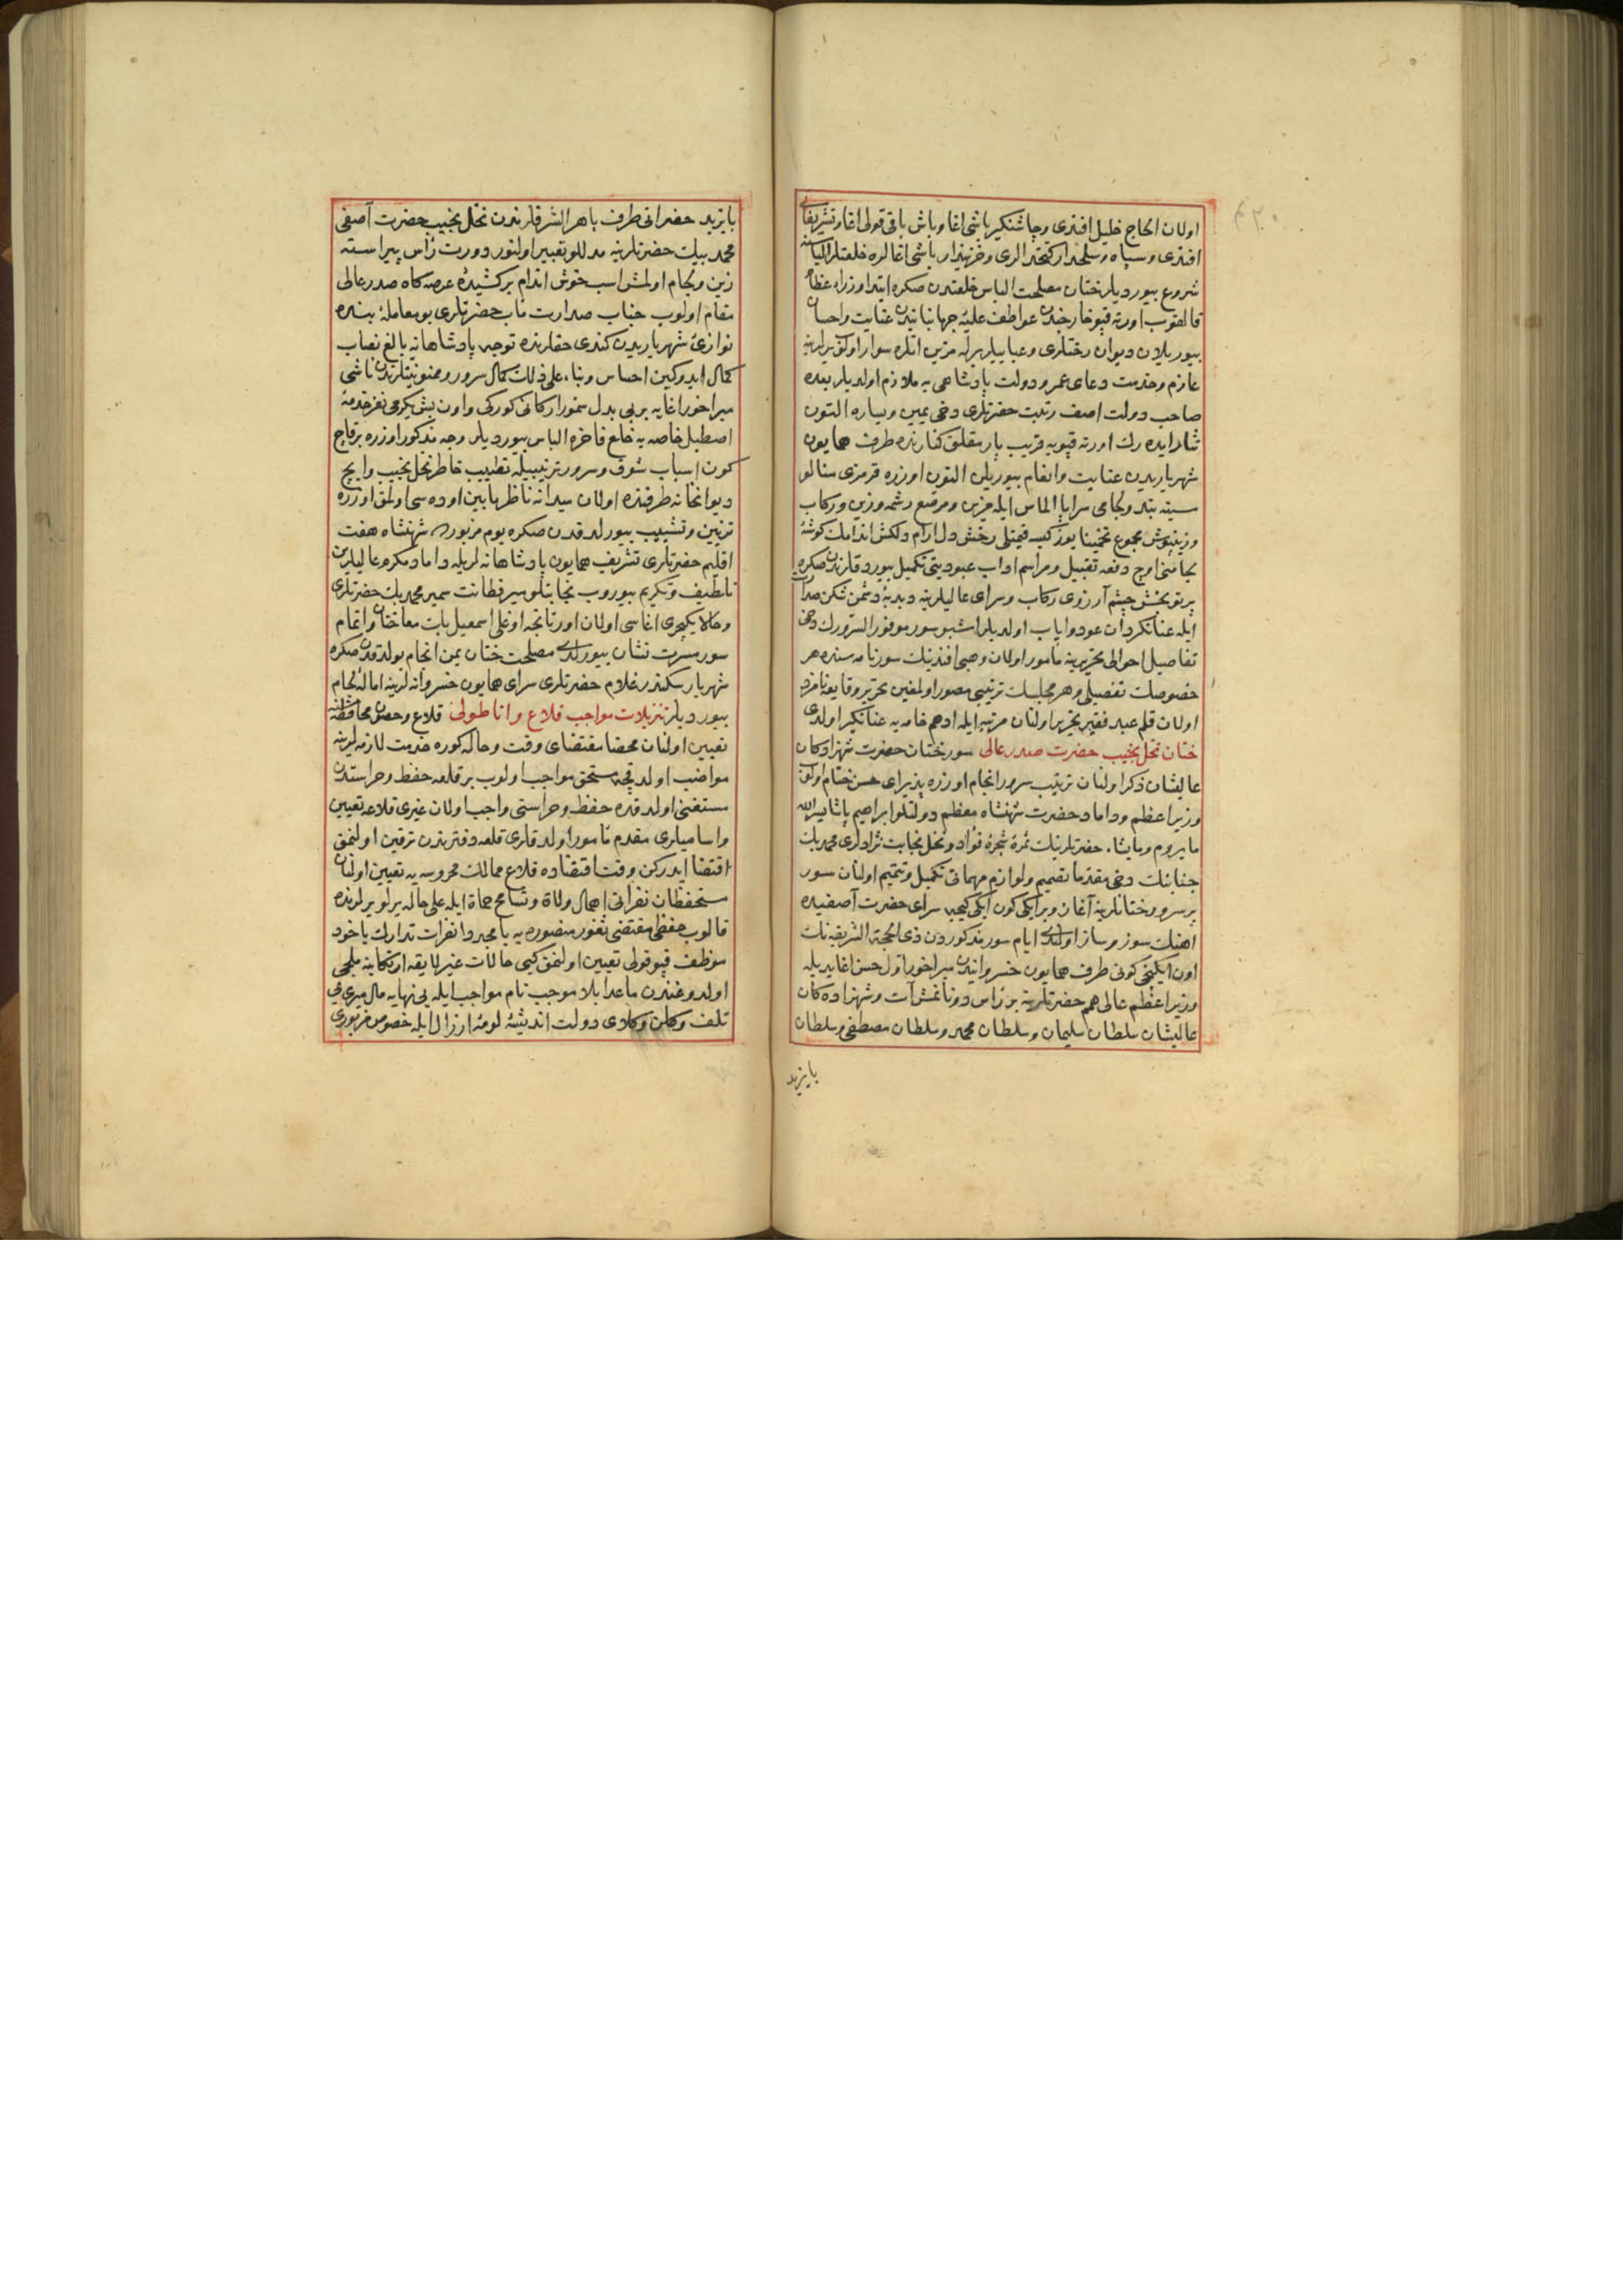 اولان الحاج خلیل افندی و چاشنکیر باشی اغا و باش باقی قولی اغا و تشریفاتی
افندی و سپاه و سلحدار کتخدالری و خزینه‌دار باشی اغالره خلعتلر الباسنه
شروع بیوردیلر ختان مصلحت الباس خلعتدن صکره ابتدا وزراء عظام
قالقوب اورته قپو خارجنده عواطف علیهٔ جهانبانیدن عنایت و احسان
بیوریلان دیوان رختلری و عباییلر برله مزین اتلره سوار اولوب یرلرینه
عازم و خدمت دعای عمر و دولت پادشاهی یه ملازم اولدیلر بعده
صاحب دولت اصف رتبت حضرتلری دخی یمین و یساره التون
نثار ایده رك اورته قپویه قریب یار مقلق کنارنده طرف همایون
شهریاریدن عنایت و انعام بیوریلن التون اوزره قرمزی
سینه بند و لجامی سراپا الماس ایله مزین و مرصع رشمه و زین و رکاب
و زینپوش مجموع تخمینا یوز کیسه قیمتلی رخش دل ارام و دلکش اندامك کوشهٔ
لجامنی اوچ دفعه تقبیل و مراسم اداب عبودیتی تکمیل بیوردقلرندن صکره
پرتو بخش چشم آرزوی رکاب و سرای عالیلرینه دبدبهٔ دشمن شکن صدارت
ایله عنانکردان عود و ایاب اولدیلر اشبو سور موفور السرورك دخی
تفاصیل احوالی تحریرینه مأمور اولان وهبی افندینك سورنامه سنده هر
خصوصك تفصیلی و هر مجلسك ترتیبی مصور اولمغین تحریر وقایعه نامزد
اولان قلم عبد فقیر تحریر اولنان مرتبه ایله ادهم خامه یه عنانکیر اولدی
ختان نخل نجیب حضرت صدر عالی سور ختان حضرت شهزادکان
عالیشان ذکر اولنان ترتیب سرور انجام اوزره پذیرای حسن ختام اولمق
وزیر اعظم و داماد حضرت شهنشاه معظم دولتلو ابراهیم پاشا یسر الله
ما یروم و ما یشاء حضرتلرینك ثمرهٔ شجرهٔ فؤاد و نخل نجابت نژادلری محمد بك
جنابنك دخی مقدما تصمیم و لوازم مهماتی تکمیل و تتمیم اولنان سور
پرسرور ختانلرینه آغاز و بر ایکی کون ایکی کیجه سرای حضرت آصفیده
اهنك سوز و ساز اولندی ایام سور مذکور دن ذی الحجة الشریفه نك
اون ایکنجی کونی طرف همایون خسروانیدن میراخور اول حسن اغا یدیله
وزیر اعظم عالی همم حضرتلرینه بر رأس دوناتمش آت و شهزاده کان
عالیشان سلطان سلیمان و سلطان محمد و سلطان مصطفی و سلطان
بایزید
بایزید حضراتی طرف باهر الشرفلرندن نخل نجیب حضرت آصفی
محمد بیك حضرتلرینه مدللو تعبیر اولنور دورت رأس پیراسته
زین و لجام اولمش اسب خوش اندام برکشیدهٔ عرصه کاه صدر عالی
مقام اولوب جناب صدارت مآب حضرتلری بو معاملهٔ بنده
نوازیٔ شهریاریدن کندی حقلرنده توجه پادشاهانه بالغ نصاب
کمال ایدوکین احساس و بناء علی ذلك کمال سرور و ممنونیتلرندن ناشی
میراخور اغایه بر بی بدل سمور ارکانی کورکی و اون بش یکرمی نفر خدمهٔ
اصطبل خاصه یه خلع فاخره الباس بیوردیلر وجه مذکور اوزره برقاج
کون اسباب شوق و سرور ترتیبیله تطییب خاطر نخل نجیب و ایچ
دیوانخانه طرفنده اولان میدانه ناظر مابین اوده سی اولمق اوزره
تزیین و تشبیب بیورلدقدن صکره یوم مزبورده شهنشاه هفت
اقلیم حضرتلری تشریف همایون پادشاهانه لریله داماد مکرم عالیلرین
تلطیف و تکریم بیوروب نجابتلو میر فطانت سمیر محمد بك حضرتلری
و حالا یکیچری اغاسی اولان اورتانجه اوغلی اسمعیل بك معا ختان و اتمام
سور مسرت نشان بیورلدی مصلحت ختان یمن انجام بولدقدن صکره
شهریار سکندر غلام حضرتلری سرای همایون خسروانه لرینه امالهٔ لجام
بیوردیلر تنزیلات مواجب قلاع و اناطولی قلاع و حصون محافظه‌سنه
تعیین اولنان محضا مقتضای وقت و حاله کوره خدمت لازمه لرینه
مواضب اولدقجه مستحق مواجب اولوب بر قلعه حفظ و حراستدن
مستغنی اولدقده حفظ و حراستی واجب اولان غیری قلاعه تعیین
و اسامیلری مقدم مأمور اولدقلری قلعه دفترندن ترقین اولنمق
اقتضا ایدرکن وقت اقتضاده قلاع ممالك محروسه یه تعیین اولنان
مستحفظان نفراتی اهمال ولاة و تسامح حماة ایله علی حاله یرلو یرلرنده
قالوب حفظی مقتضی ثغور منصوره یه یا مجددا نفرات تدارك یاخود
موظف قپو قولی تعیین اولنمق کبی حالات غیر لایقه ارتکابنه ملجی
اولدوغندن ماعدا بلا موجب تام مواجب ایله بی نهایه مال میری یی
تلف وکلای دولت اندیشهٔ لومهٔ ارزال ایله خصوص مزبوری